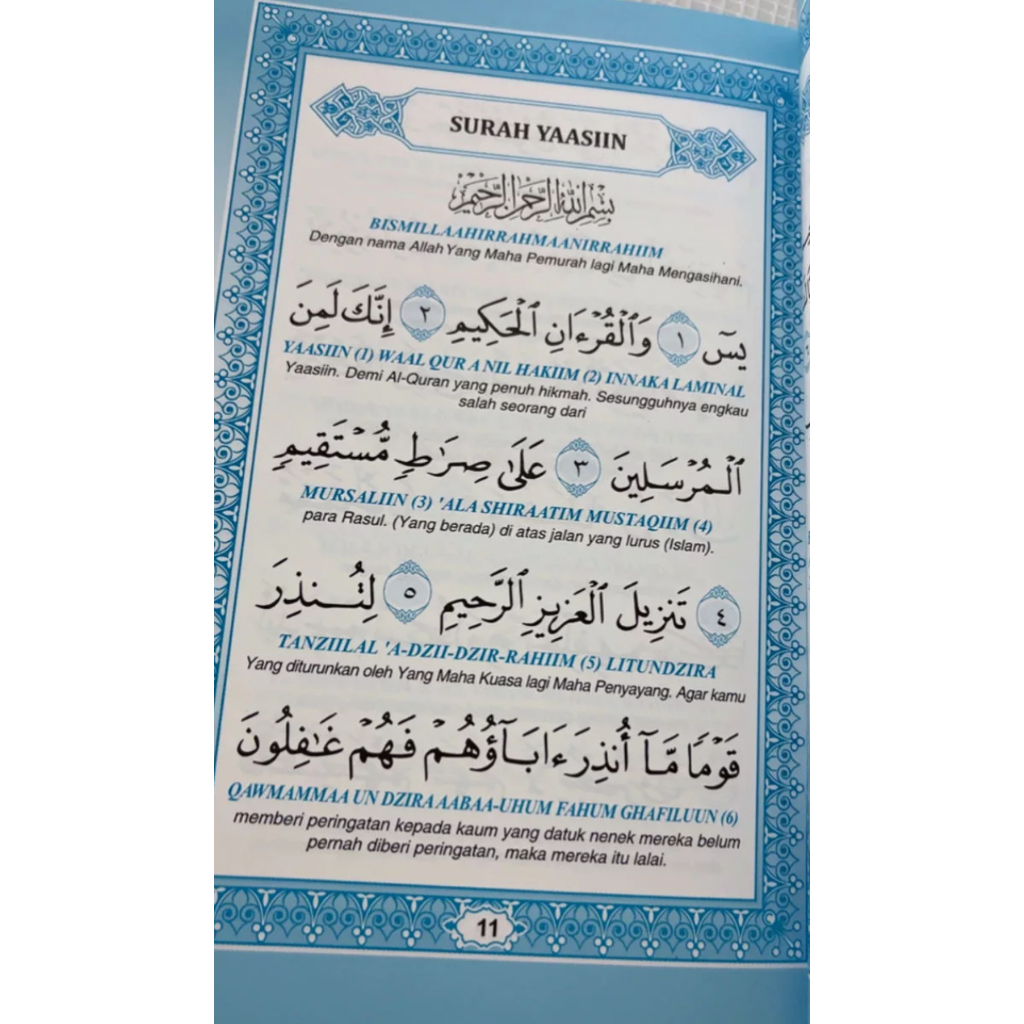 SURAH YAASIIN
بِسْمِ اللَّهِ الرَّحْمَٰنِ الرَّحِيمِ
BISMILLAAHIRRAHMAANIRRAHIIM
Dengan nama Allah Yang Maha Pemurah lagi Maha Mengasihani.
يسٓ ١ وَٱلْقُرْءَانِ ٱلْحَكِيمِ ٢ إِنَّكَ لَمِنَ
YAASIIN (1) WAAL QUR A NIL HAKIIM (2) INNAKA LAMINAL
Yaasiin. Demi Al-Quran yang penuh hikmah. Sesungguhnya engkau
salah seorang dari
ٱلْمُرْسَلِينَ ٣ عَلَىٰ صِرَٰطٍ مُّسْتَقِيمٍ
MURSALIIN (3) 'ALA SHIRAATIM MUSTAQIIM (4)
para Rasul. (Yang berada) di atas jalan yang lurus (Islam).
٤ تَنزِيلَ ٱلْعَزِيزِ ٱلرَّحِيمِ ٥ لِتُنذِرَ
TANZIILAL 'A-DZII-DZIR-RAHIIM (5) LITUNDZIRA
Yang diturunkan oleh Yang Maha Kuasa lagi Maha Penyayang. Agar kamu
قَوْمًا مَّآ أُنذِرَ ءَابَآؤُهُمْ فَهُمْ غَٰفِلُونَ
QAWMAMMAA UN DZIRA AABAA-UHUM FAHUM GHAFILUUN (6)
memberi peringatan kepada kaum yang datuk nenek mereka belum
pernah diberi peringatan, maka mereka itu lalai.
11